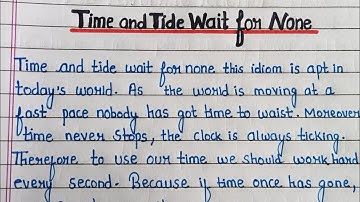 Time and Tide Wait for None
Time and tide wait for none this idiom is apt in
today's world. As the world is moving at a
fast pace nobody has got time to waist. Moreover
time never stops, the clock is always ticking.
Therefore to use our time we should work hard
every second. Because if time once has gone,